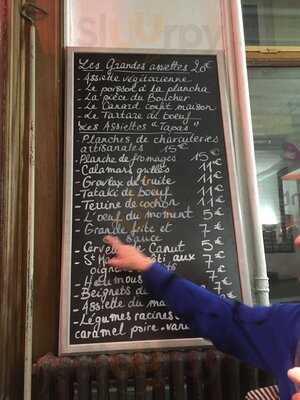 Les Grandes assiettes 20€
- Assiette végétarienne
- Le poisson à la plancha
- La pièce du Boucher
- Le Canard confit maison
- Le Tartare de bœuf
Les Assiettes "Tapas"
- Planches de charcuteries
artisanales 15€
- Planche de fromages 15€
- Calamars grillés 11€
- Gravlax de truite 11€
- Tataki de boeuf 11€
- Terrine de cochon 11€
- L'oeuf du moment 5€
- Grande frite et 7€
sauce
- Cervelle de Canut 5€
- St aux 7€
oignons
- Houmous 7€
- Beignets de
- Assiette du
- Légumes racines
caramel poire